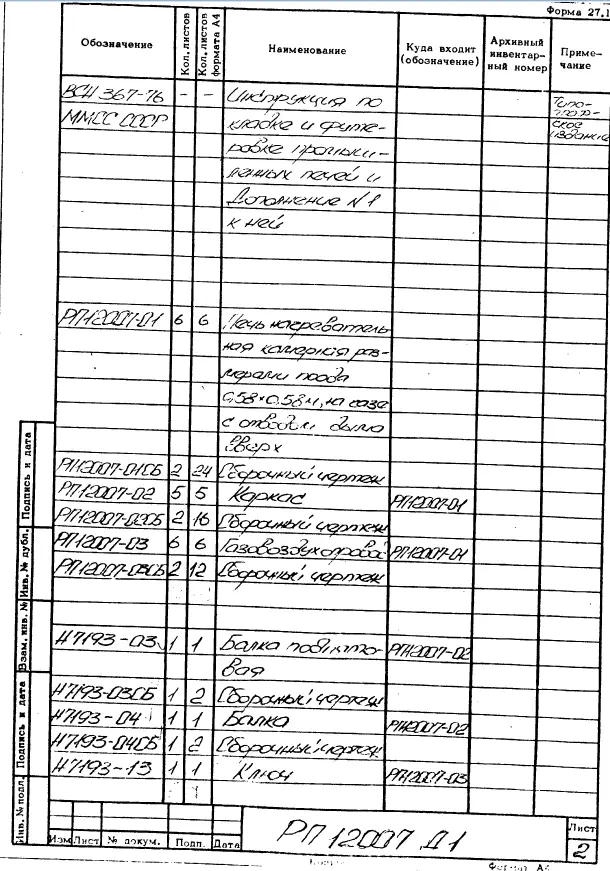 Форма 27.1
Обозначение Кол. листов Кол. листов формата А4 Наименование Куда входит (обозначение) Архивный инвентарный номер Примечание
ВСН 367-76 - - Инструкция по Типо-
ММСС СССР кладке и футе- граф-
ровке промыш- ское
ленных печей и издание
Дополнение N1
к ней
РП12007-01 6 6 Печь нагреватель
ная камерная раз-
мерами пода
0,58×0,58м, на газе
с отводом дыма
вверх
РП12007-01СБ 2 24 Сборочный чертеж
РП12007-02 5 5 Каркас РП12007-01
РП12007-02СБ 2 16 Сборочный чертеж
РП12007-03 6 6 Газовоздухопровод РП12007-01
РП12007-03СБ 2 12 Сборочный чертеж
Н7193-03 1 1 Балка подпято- РП12007-02
вая
Н7193-03СБ 1 2 Сборочный чертеж
Н7193-04 1 1 Балка РП12007-02
Н7193-04СБ 1 2 Сборочный чертеж
Н7193-13 1 1 Ключ РП12007-03
Инв. № подл. Подпись и дата Взам. инв. № Инв. № дубл. Подпись и дата
РП12007 Д1
Лист
2
Изм Лист № докум. Подп. Дата
Формат А4